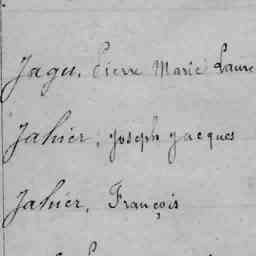 Jagu, Pierre Marie Laure
Jahier, Joseph Jacques
Jahier, François